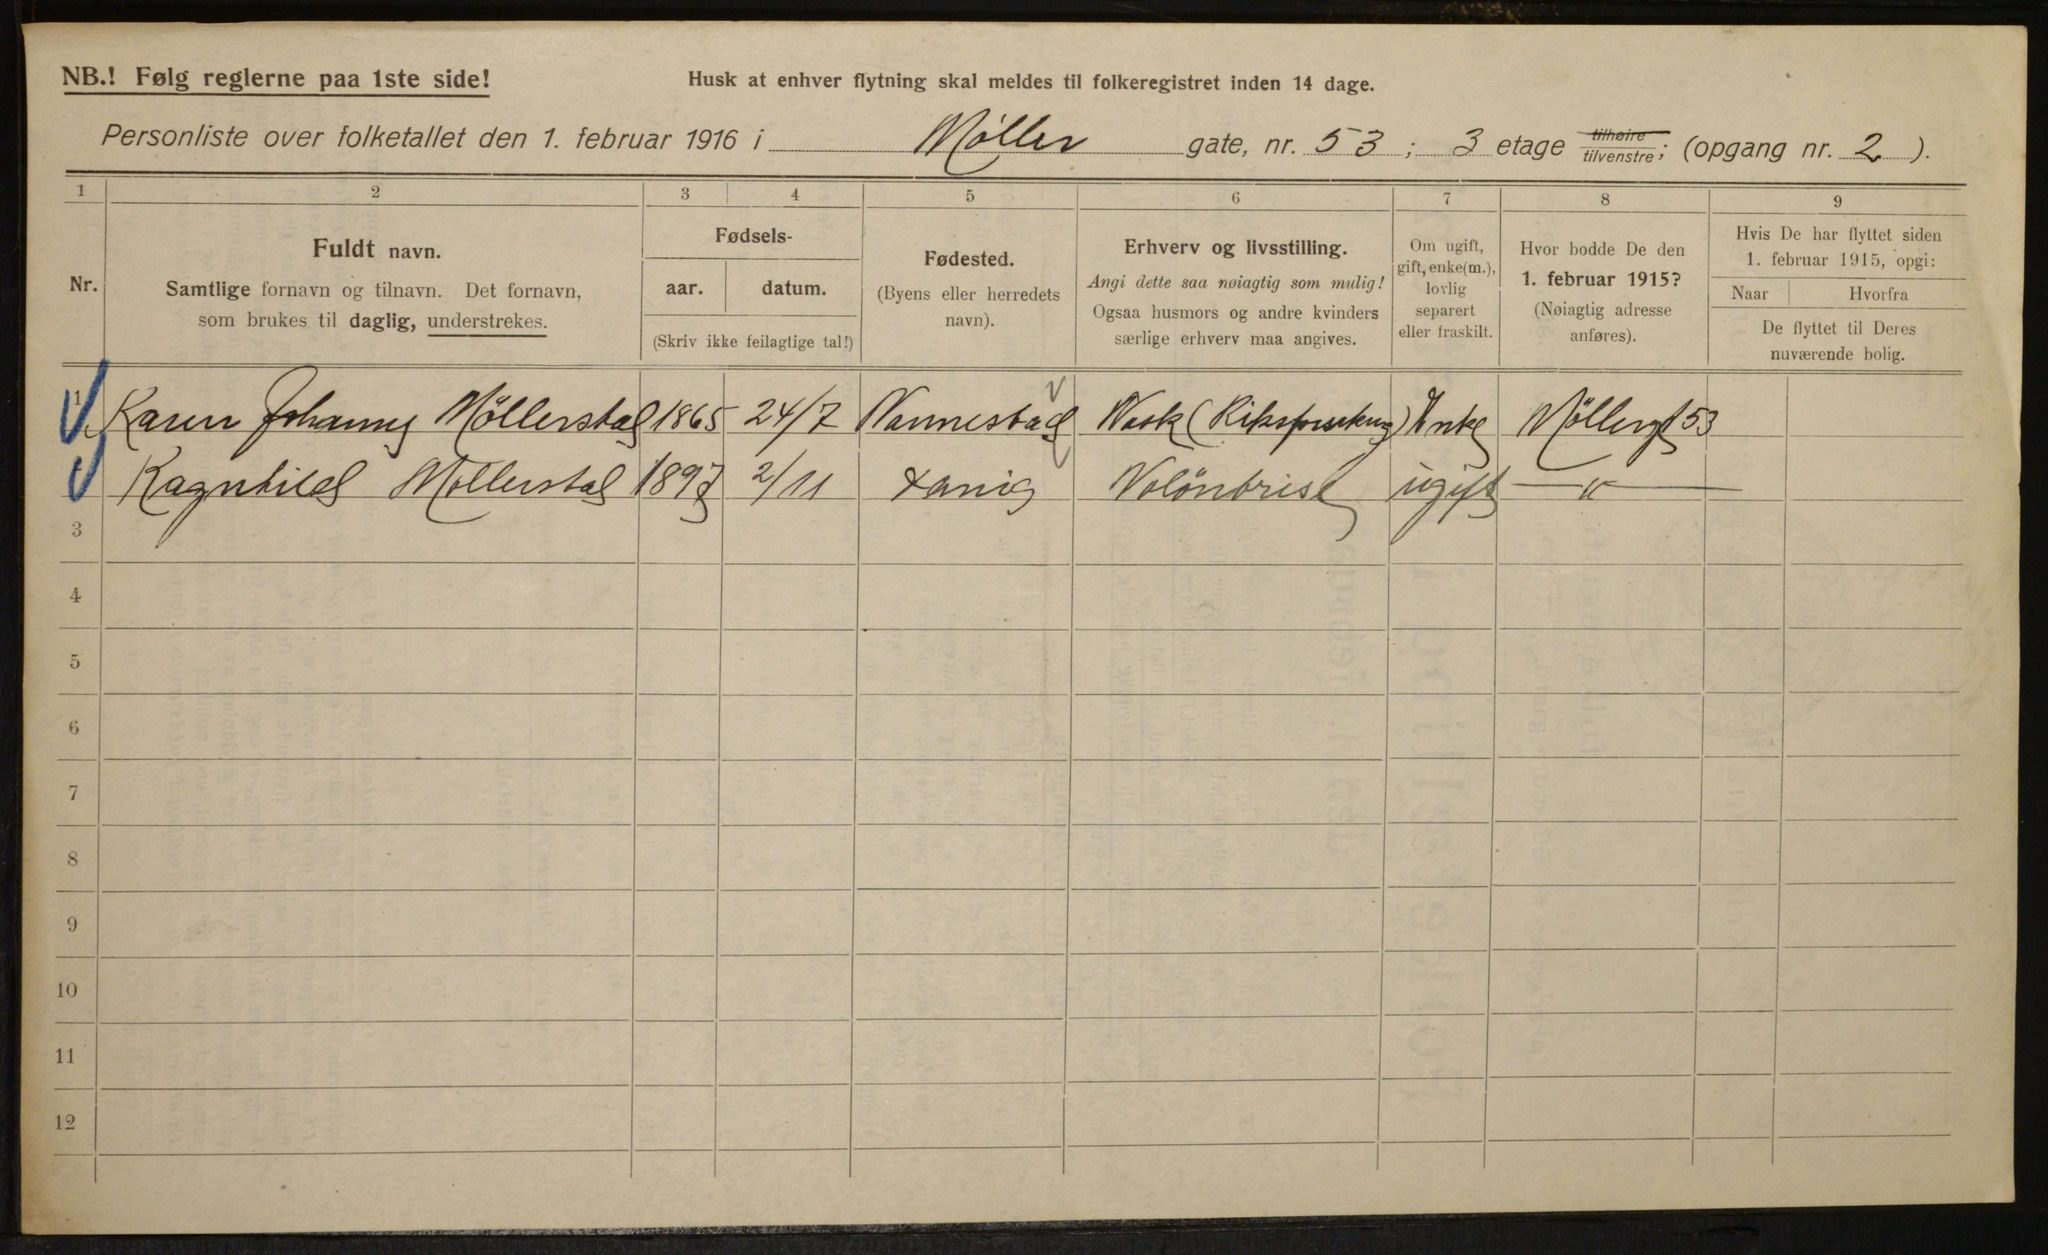 NB.! Følg reglerne paa 1ste side!
Husk at enhver flytning skal meldes til folkeregistret inden 14 dage.
Personliste over folketallet den 1. februar 1916 i Møller gate, nr. 53; 3 etage tilhøire/tilvenstre; (opgang nr. 2).
1 2 3 4 5 6 7 8 9
Nr.
Fuldt navn.
Samtlige fornavn og tilnavn. Det fornavn,
som brukes til daglig, understrekes.
Fødsels-
aar. datum.
(Skriv ikke feilagtige tal!)
Fødested.
(Byens eller herredets
navn).
Erhverv og livsstilling.
Angi dette saa nøiagtig som mulig!
Ogsaa husmors og andre kvinders
særlige erhverv maa angives.
Om ugift,
gift, enke(m.),
lovlig
separert
eller fraskilt.
Hvor bodde De den
1. februar 1915?
(Nøiagtig adresse
anføres).
Hvis De har flyttet siden
1. februar 1915, opgi:
Naar Hvorfra
De flyttet til Deres
nuværende bolig.
1 Karen Johanne Möllerstad 1865 24/7 Nannestad Vask Enke Möllergt 53
Ragnhild Möllerstad 1897 2/11 ugift —"—
3
4
5
6
7
8
9
10
11
12